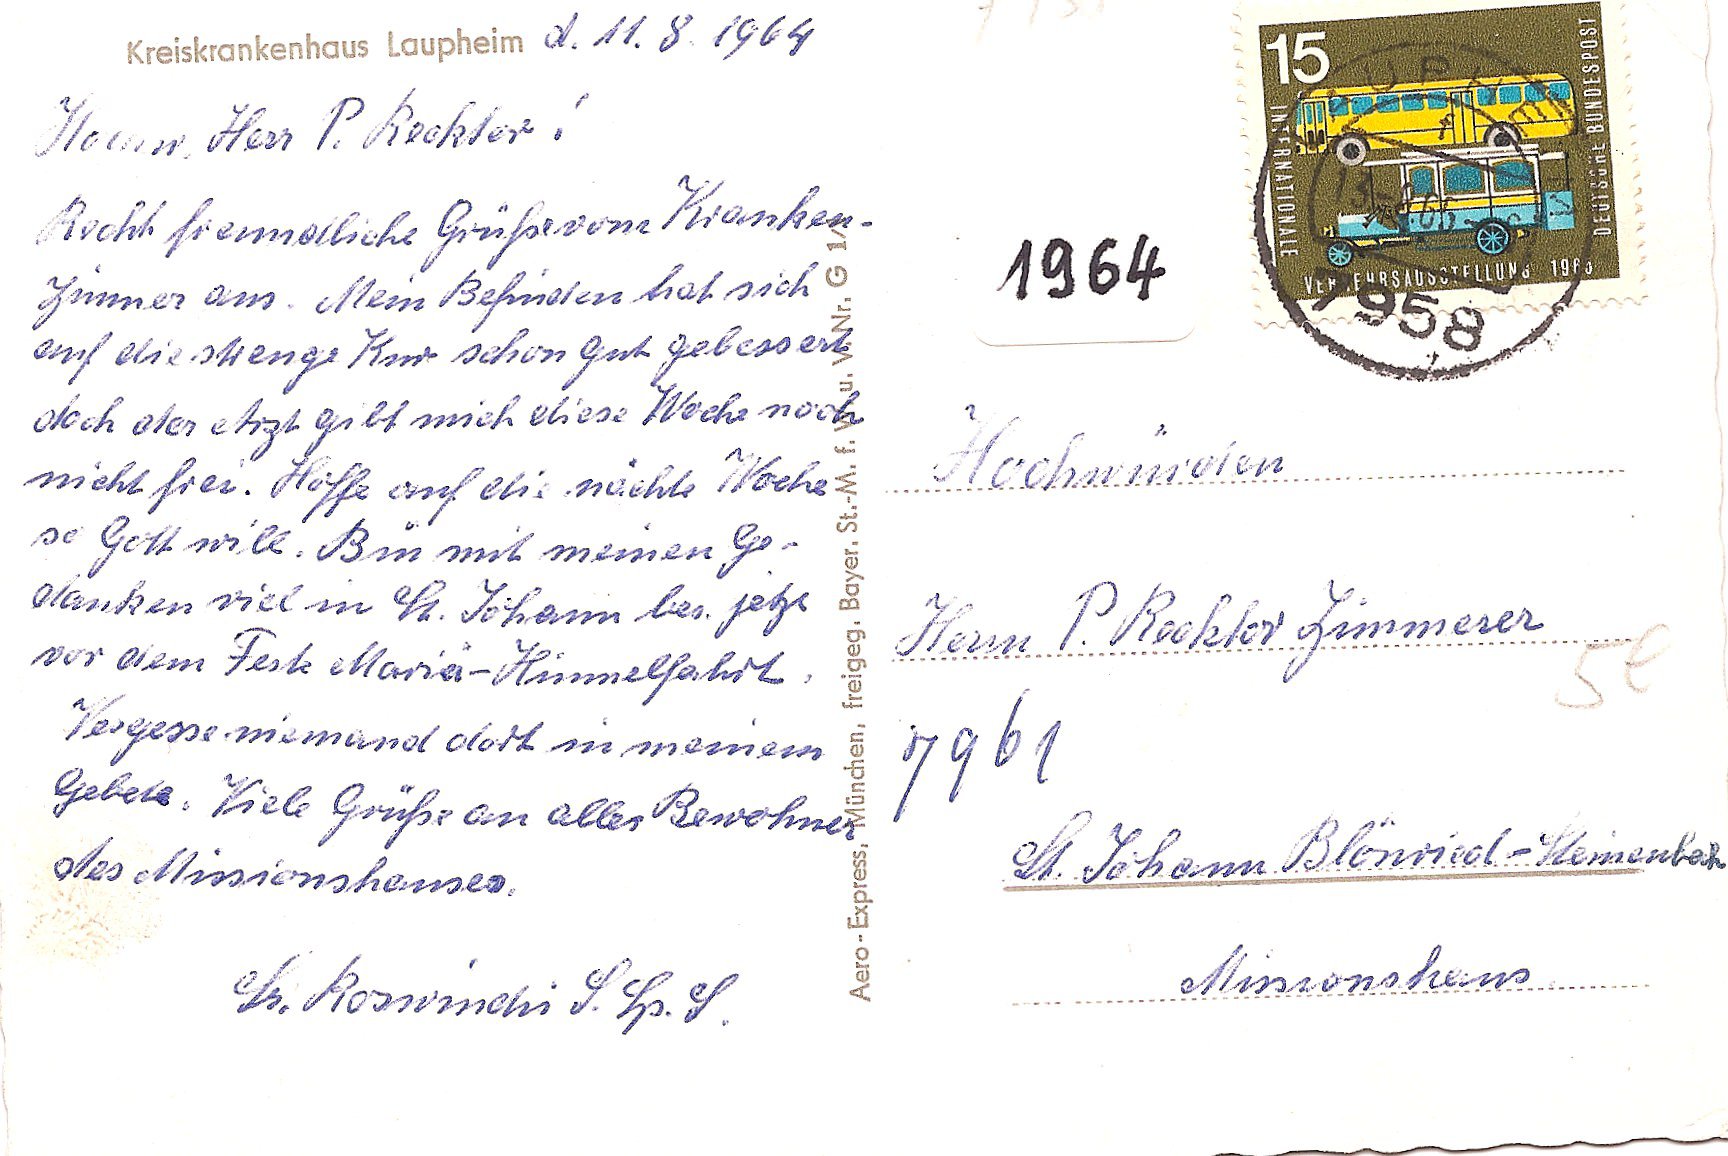 Kreiskrankenhaus Laupheim d. 11. 8. 1964
Herr P. Recktor!
Recht freundliche Grüße vom Kranken-
Zimmer aus. Mein Befinden hat sich
auf die strenge Kur schon gut gebessert
doch der Arzt gibt mich diese Woche noch
nicht frei. Hoffe auf die nächste Woche
so Gott will. Bin mit meinen Ge-
danken viel in St. Johann bes. jetzt
vor dem Feste Mariä-Himmelfahrt.
Vergesse niemand dort in meinem
Gebete. Viele Grüße an alles Bewohner
des Missionshauses.
Sr. S.
Aero-Express, München, freigeg. Bayer. St.-M. f. W. u. V. Nr. G 1/
1964
15
INTERNATIONALE
VERKEHRSAUSSTELLUNG 1965
DEUTSCHE BUNDESPOST
7958
Hochwürden
Herrn P. Recktor Zimmerer
7961
St. Johann Blönried-Steinenbach
Missionshaus
5€